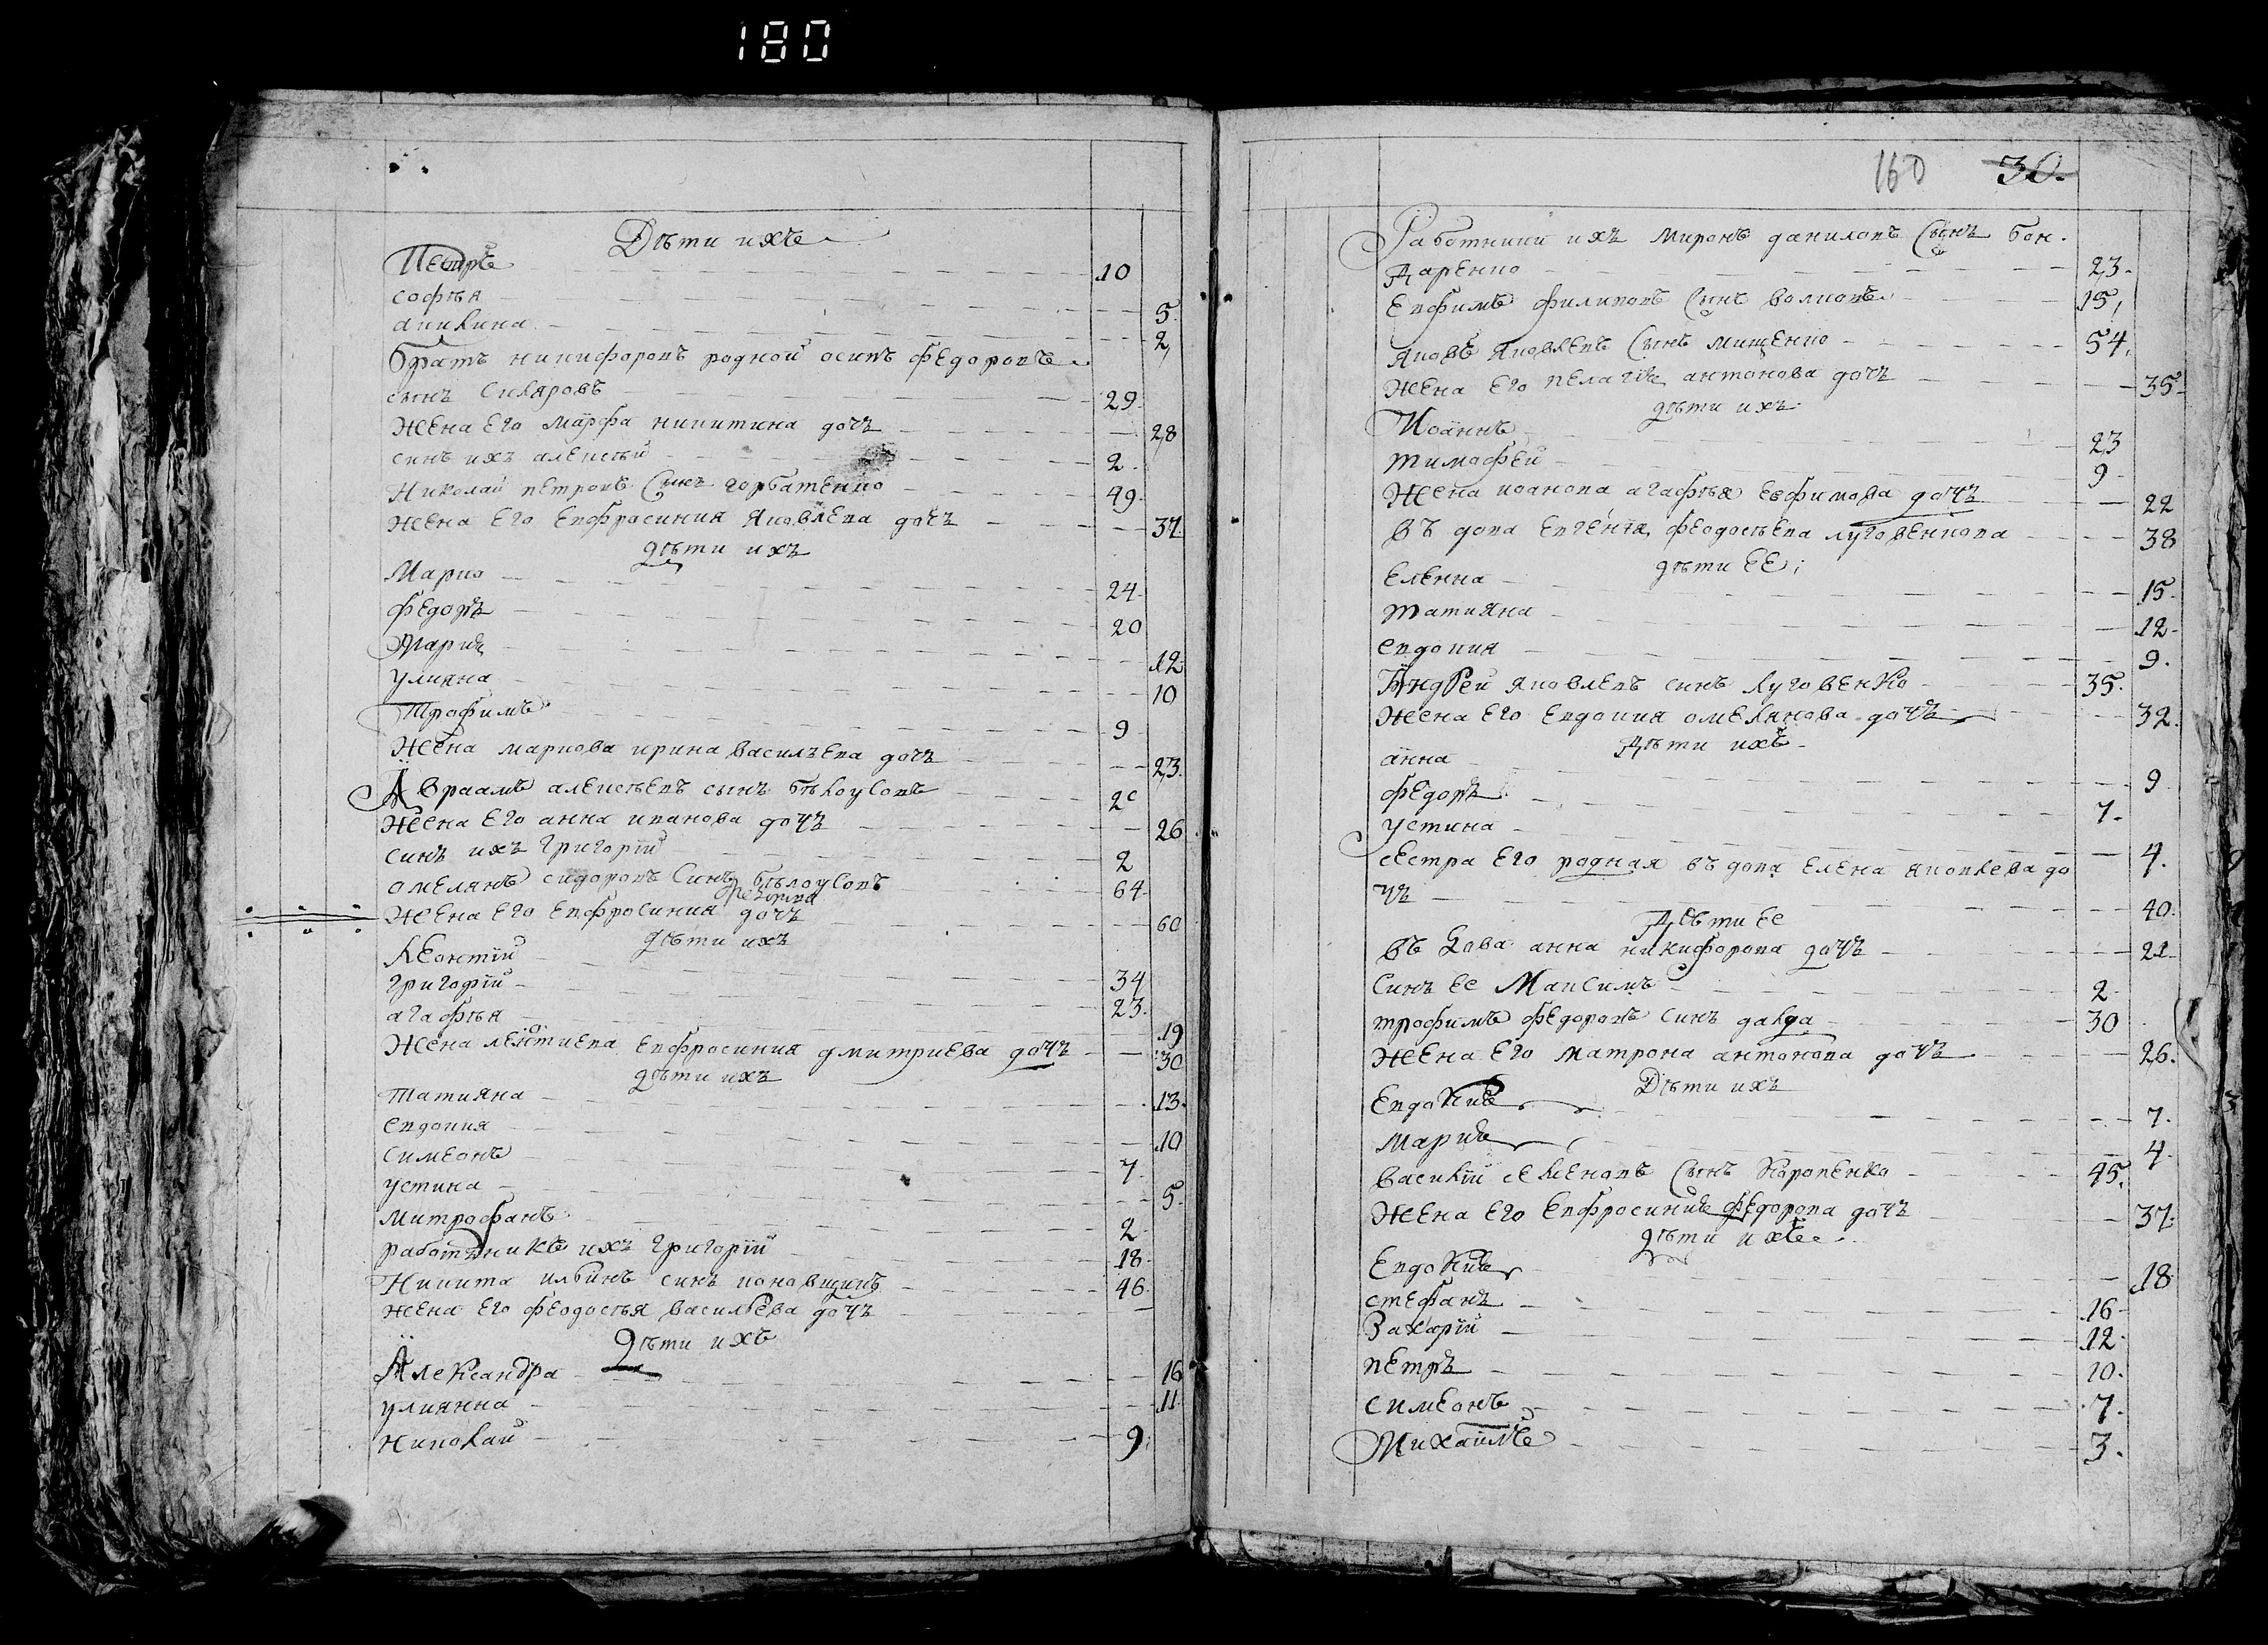 180
Дѣти ихъ
Петръ 10
софѣя 5
акилина 2
братъ никифоровъ родной осипъ федоровъ
сынъ скляровъ 29
жена его марфа никитина дочъ 28
синъ ихъ алексѣй 2
Николай петровъ сынъ горбатенко 49
жена его евфросиния яковлева дочъ 37
дѣти ихъ
Марко 24
федоръ 20
Мария 12
улияна 10
Трофимъ 9
жена маркова ирина василъева дочъ 23
Авраамъ алексѣевъ сынъ бѣлоусовъ
жена его анна иванова дочъ 26
синъ ихъ григорій 2
омелянъ сидоровъ синъ бѣлоусовъ 64
жена его евфросиния дочъ 60
дѣти ихъ
леонтій
григорій 34
агафѣя 23
19
жена леонтиева евфросиния дмитриева дочъ 30
дѣти ихъ
татияна 13
евдокия 10
симеонъ 7
устина 5
митрофанъ 2
работникъ ихъ григорій 18
Никита илбинъ синъ коновщикъ 46
жена его феодосѣя василѣева дочъ
Дѣти ихъ
Александра 16
улиянна 11
николай 9
160 30.
Работники ихъ миронъ даниловъ сынъ бон.
даренко 23
евфимъ филиповъ сынъ волковъ 15
яковъ яковлевъ сынъ мищенко 54
жена его пелагия антонова дочъ 35
дѣти ихъ
Иоаннъ 23
тимофей 9
жена иоанова агафѣя евфимова дочъ 22
въ дова евгения феодосѣева луговенкова 38
дѣти ее
елена 15
татияна 12
евдокия 9
Андрей яковлевъ синъ луговенко 35
жена его евдокия омелянова дочъ 32
дѣти ихъ
анна 9
федоръ 7
устина 4
сестра его родная въ дова елена яковлева до
чъ 40
дѣти ее
въ дова анна никифорова дочъ 21
синъ ее Максимъ 2
трофимъ федоровъ синъ далда 30
жена его матрона антонова дочъ 26
Дѣти ихъ
Евдокия 7
Мария 4
василій семеновъ сынъ Короленко 45
жена его евфросиния федорова дочъ 37
дѣти ихъ
Евдокия 18
стефанъ 16
Захарій 12
петръ 10
симеонъ 7
Михаилъ 3